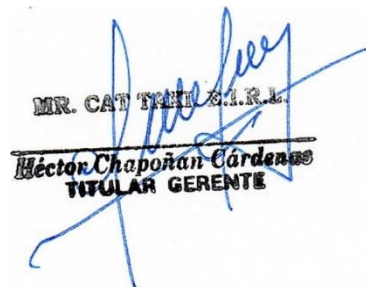 MR. CAT TAXI E.I.R.L.
Héctor Chapoñan Cárdenas
TITULAR GERENTE